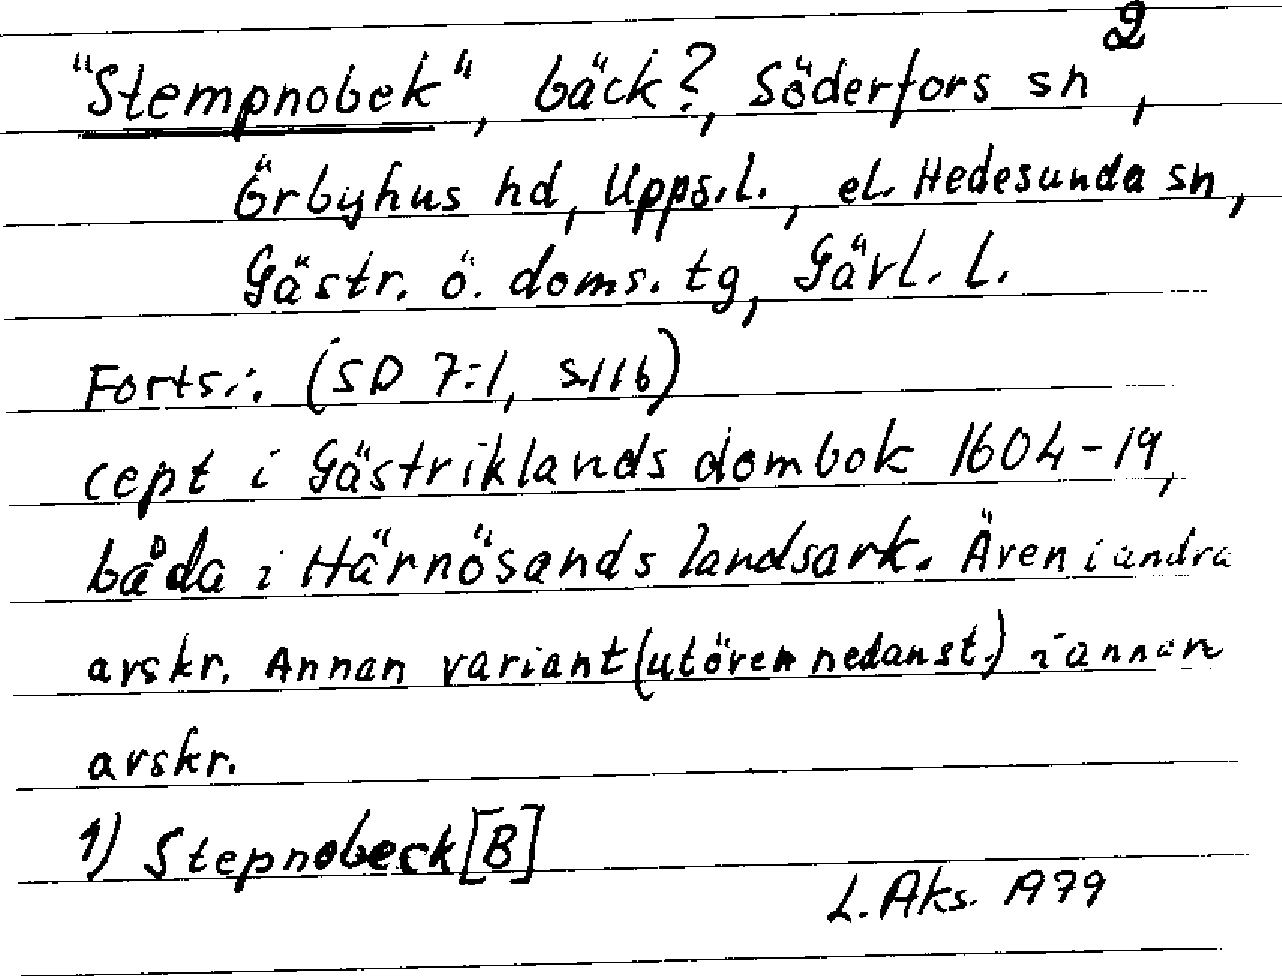 2
"Stempnobek", bäck?, Söderfors sn,
Örbyhus hd, Upps.l., el. Hedesunda sn,
Gästr. ö. doms. tg, Gävl. l.
Forts.: (SD 7:1, s.116)
cept i Gästriklands dombok 1604-19,
båda i Härnösands landsark. Även i andra
avskr. Annan variant (utöver nedanst.) i annan
avskr.
1) Stepnobeck [B]
L. Aks. 1979